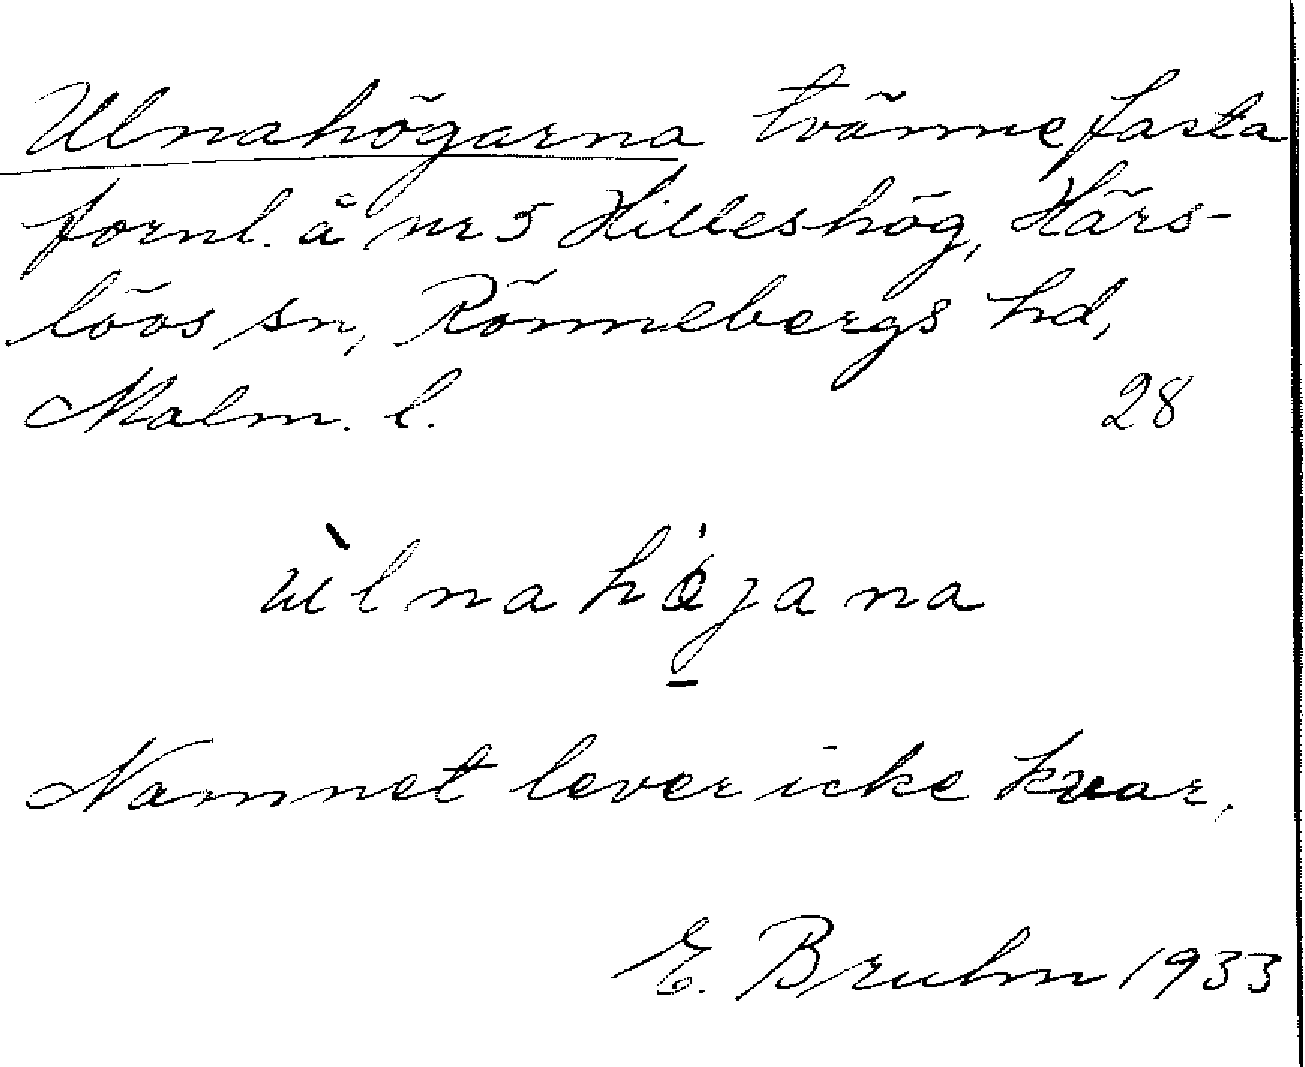 Ulnahögarna tvänne fasta
fornl. å nr 5 Hilleshög, Härs-
löos sn, Rönnebergs hd,
Malm. l. 28
ùlnahö́jana
Namnet lever icke kvar.
E. Bruhn 1933